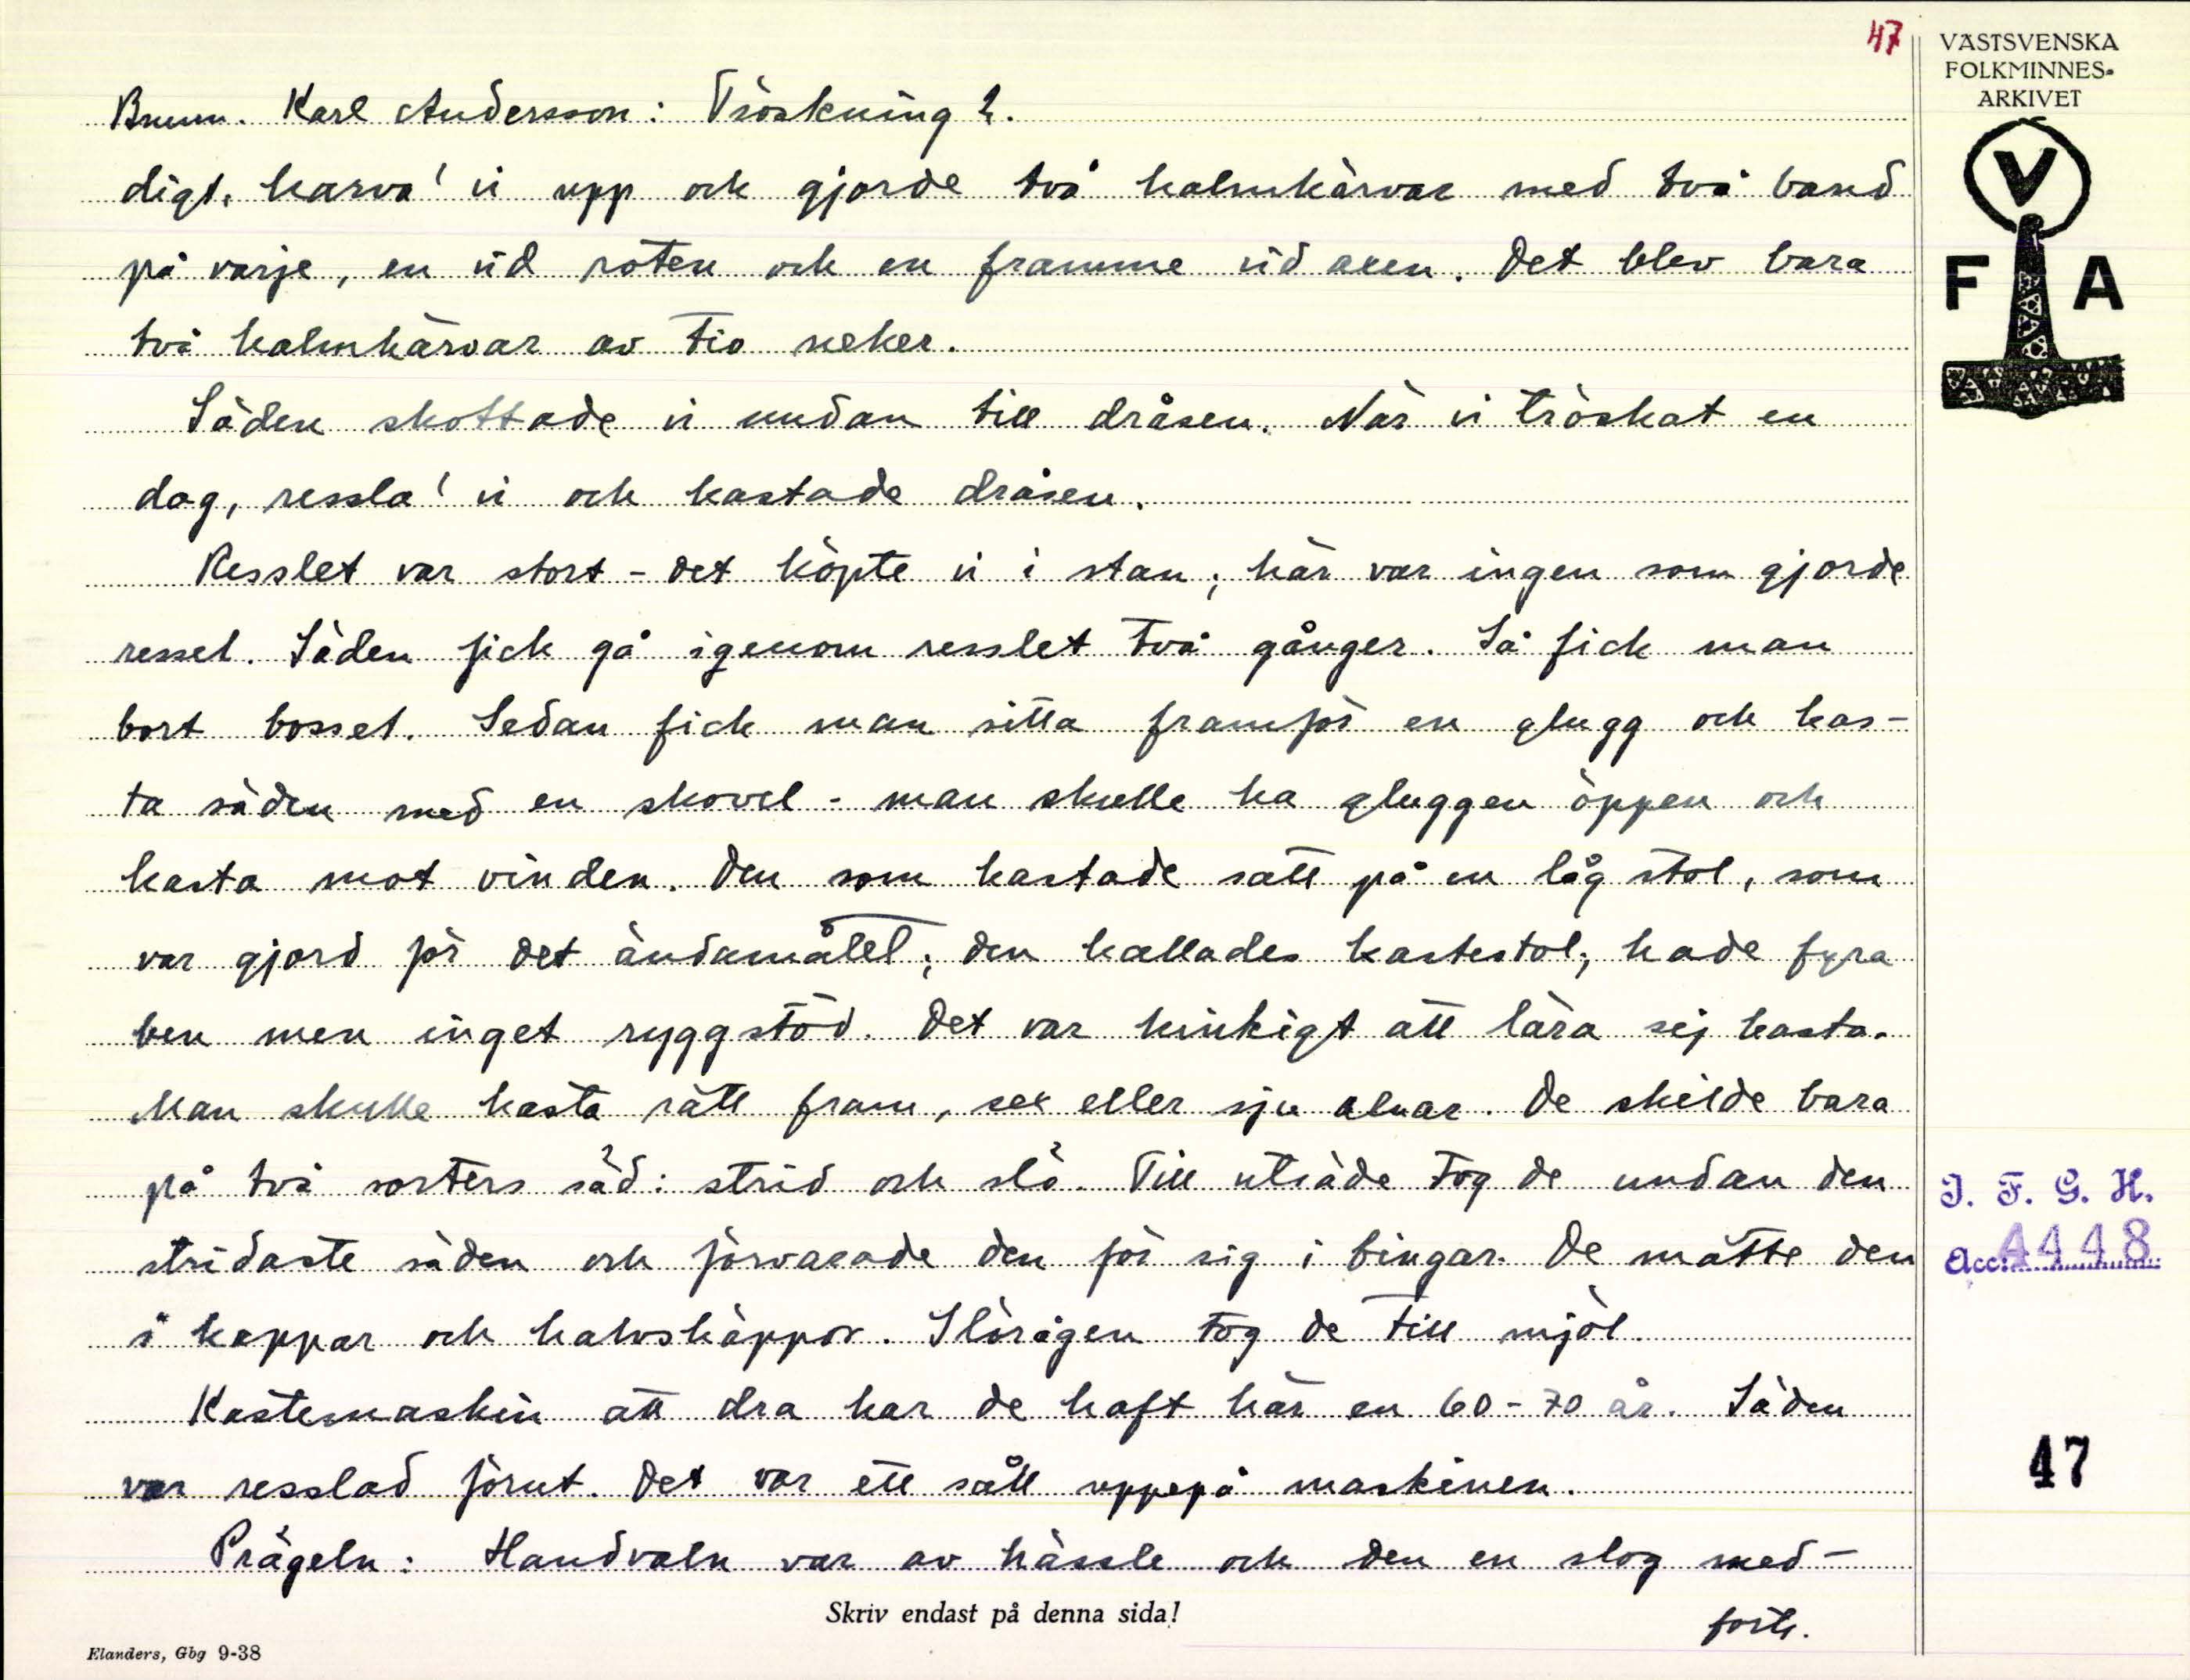 47
VÄSTSVENSKA
FOLKMINNES-
ARKIVET
V
F A
Brunn. Karl Andersson: Tröskning 2.
digt, karva' vi upp och gjorde två halmkärvar med två band
på varje, en vid roten och en framme vid axen. Det blev bara
två halmkärvar av tio neker.
Säden skottade vi undan till dråsen. När vi tröskat en
dag, ressla' vi och kastade dråsen.
Resslet var stort - det köpte vi i stan; här var ingen som gjorde
ressel. Säden fick gå igenom resslet två gånger. Så fick man
bort bosset. Sedan fick man sitta framför en glugg och kas-
ta säden med en skovel - man skulle ha gluggen öppen och
kasta mot vinden. Den som kastade satt på en låg stol, som
var gjord för det ändamålet; den kallades kastestol; hade fyra
ben men inget ryggstöd. Det var kinkigt att lära sej kasta.
Man skulle kasta rätt fram, sex eller sju alnar. De skilde bara
på två sorters säd: strid och slö. Till utsäde tog de undan den
stridaste säden och förvarade den för sig i bingar. De mätte den
i kappar och halvskäppor. Slörågen tog de till mjöl.
Kastemaskin att dra har de haft här en 60-70 år. Säden
var resslad förut. Det var ett såll uppepå maskinen.
Prägeln: Handvaln var av hässle och den en slog med-
forts.
Skriv endast på denna sida!
Elanders, Gbg 9-38
I. F. G. H.
Acc. 4448
47